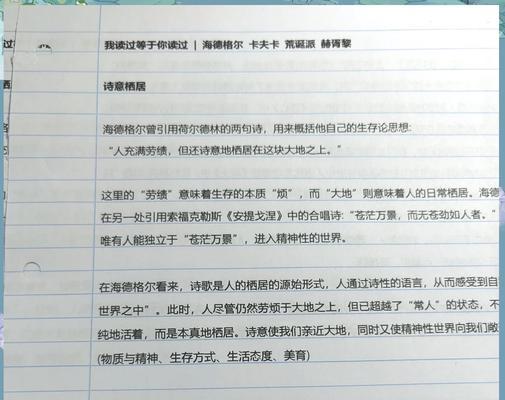 我读过等于你读过 | 海德格尔 卡夫卡 荒诞派 赫胥黎
诗意栖居
海德格尔曾引用荷尔德林的两句诗，用来概括他自己的生存论思想：
“人充满劳绩，但还诗意地栖居在这块大地之上。”
这里的“劳绩”意味着生存的本质“烦”，而“大地”则意味着人的日常栖居。海德
在另一处引用索福克勒斯《安提戈涅》中的合唱诗：“苍茫万景，而无苍劲如人者。”
唯有人能独立于“苍茫万景”，进入精神性的世界。
在海德格尔看来，诗歌是人的栖居的源始形式，人通过诗性的语言，从而感受到自
世界之中”。此时，人尽管仍然劳烦于大地之上，但已超越了“常人”的状态，不
纯地活着，而是本真地栖居。诗意使我们亲近大地，同时又使精神性世界向我们敞
(物质与精神、生存方式、生活态度、美育)